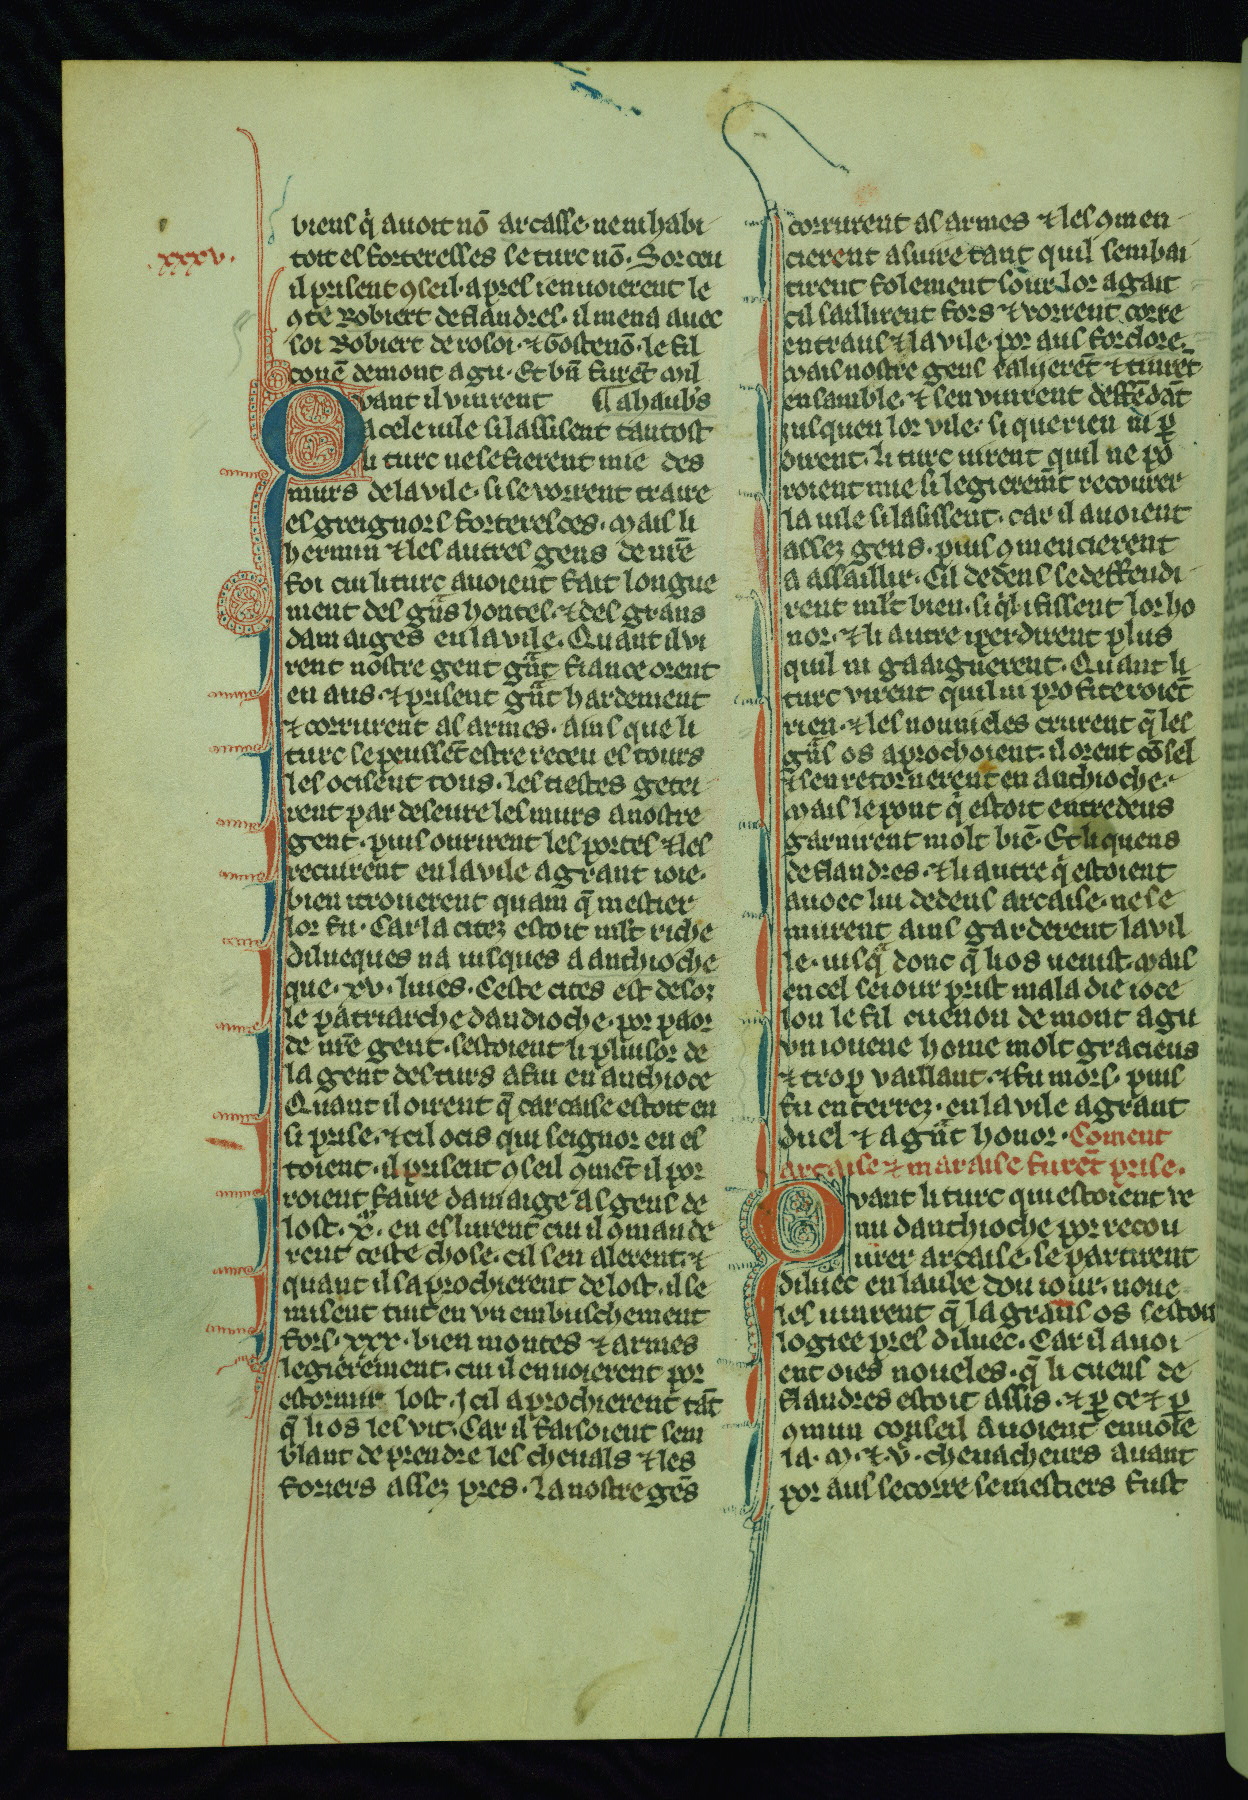 .xxxv.
viens q̇ auoit nō arcasse. nenihabi
toit es forteresses se turc nō. Sor ceu
il prisent ꝯseil. apres ienuoierent le
ꝯte Robiert de flandres. il mena auec
soi Robiert de rosoi. ⁊ Gostenō. le fil
conē de mont agu. Et bn̄ furēt mil
Quant il vinrent ¶ a haub's
a cele uile si lassisent tantost
li turc ne se fierent mie des
murs de la vile. si se vorrent traire
es greignors forteresces. mais li
hermin ⁊ les autres gens de nr̄e
foi cui li turc auoient fait longue
ment des gn̄s hontes. ⁊ des grans
damaiges en la vile. Quant il vi
rent nostre gent gn̄t fiance orent
en aus. ⁊ prisent gn̄t hardement
⁊ corrurent as armes. ains que li
turc se peussēt estre receu es tours
les ocisent tous. les tiestes getei
rent par deseure les murs a nostre
gent. puis ourirent les portes ⁊ les
recuirent en la vile a grant ioie.
bien i trouerent quam q̄ mestier
lor fu. Car la citez estoit ml't riche
dilueques na iusques a anthioche
que. xv. liues. Ceste cites est desoz
le patriarche dandioche. por paor
de nr̄e gent. sestoient li pluisor de
la gent des turs afui en anthioce
Quant il oirent q̄ carcaise estoit en
si prise. ⁊ cil ocis qui seignor en es
toient. il prisent ꝯseil ꝯmēt il por
roient faire damaige as gens de
lost. x. en eslurent cui il ꝯmande
rent ceste chose. cil sen alerent. ⁊
quant il saprochierent de lost. il se
misent tuit en vn embuschement
fors. xxx. bien montes ⁊ armes
legierement. cui il enuoierent por
estormir lost. ⁊ cil aprochierent tāt
q̄ li os les vit. Car il faisoient sem
blant de prendre les cheuals ⁊ les
foriers assez pres. La nostre gēs
corrurent as armes ⁊ les ꝯmen
cierent a suire tant quil sembai
tirent folement sour lor agait
cil saillirent fors ⁊ vorrent corre
entraus ⁊ la vile. por aus forclore.
mais nostre gens saliierēt ⁊ tinrēt
ensamble. ⁊ sen vinrent deffēdāt
iusquen lor vile. si que rien ni ꝑ
dirent. li turc uirent quil ne po
roient mie si legierem̄t recourer
la uile si lasissent. car il auoient
assez gens. puis ꝯmencierent
a assaillir. Cil dedens se deffendi
rent ml't bien. si q̇l i fissent lor ho
nor. ⁊ li autre i perdirent plus
quil ni gaaignerent. Quant li
turc virent quil ni profiteroiēt
rien. ⁊ les nouuieles crurent q̄ les
gn̄s os aprochoient. il orent cōsel
⁊ sen retornerent en anthioche.
mais le pont q̇ estoit entredeus
garnirent molt biē. Et li quens
de flandres. ⁊ li autre q̇ estoient
auoec lui dedens arcaise. ne se
murent ains garderent la vil
le. iusq̄ donc q̄ li os uenist. mais
en cel seiour prist maladie ioce
lon le fil cuenon de mont agu
vn iouene home molt gracieus
⁊ trop vaillant. ⁊ fu mors. puis
fu enterrez. en la vile a grant
duel ⁊ a gn̄t honor. Coment
arcaise ⁊ maraise furēt prise.
Quant li turc qui estoient ve
nu danthioche por recou
urer arcaise. se partirent
diluec en laube dou iour. noue
les uinrent q̄ la grans os sestoit
logiee pres diluec. Car il auoi
ent oies noueles. q̄ li cuens de
flandres estoit assis. ⁊ ꝑ ce ⁊ ꝑ
ꝯmun conseil auoient enuoie
la. m. ⁊. v. cheuacheurs auant
por aus secorre se mestiers fust